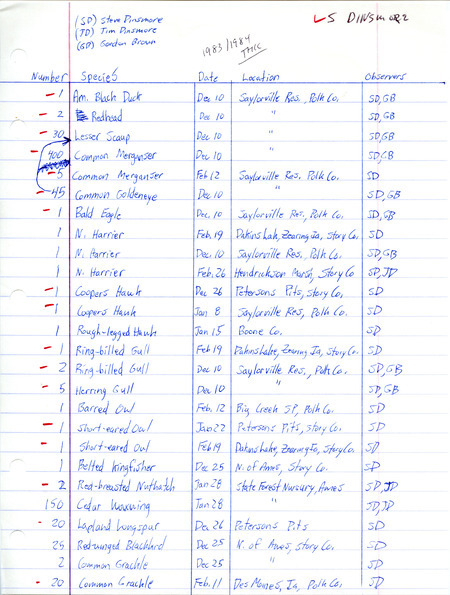 (SD) Steve Dinsmore
(JD) Jim Dinsmore
(GB) Gordon Brown
S DINSMORE
1983/1984
Number Species Date Location Observers
1 Am. Black Duck Dec 10 Saylorville Res., Polk Co. SD, GB
2 Redhead Dec 10 " SD, GB
30 Lesser Scaup Dec 10 " SD, GB
400 Common Merganser Dec 10 " SD, GB
5 Common Merganser Feb 12 Saylorville Res. Polk Co. SD
45 Common Goldeneye Dec 10 " SD, GB
1 Bald Eagle Dec, 10 Saylorville Res, Polk Co. SD, GB
1 N. Harrier Feb, 19 Dakins Lake, Zearing Ia, Story Co. SD
1 N. Harrier Dec 10 Saylorville Res., Polk Co. SD, GB
1 N. Harrier Feb, 26 Hendrickson Marsh, Story Co SD, JD
1 Coopers Hawk Dec 26 Petersons Pits, Story Co. SD
1 Coopers Hawk Jan 8 Saylorville Res, Polk Co. SD
1 Rough-legged Hawk Jan 15 Boone Co. SD
1 Ring-billed Gull Feb 19 Dakins Lake, Zearing Ia, Story Co. SD
2 Ring-billed Gull Dec 10 Saylorville Res., Polk Co. SD, GB
5 Herring Gull Dec 10 " SD, GB
1 Barred Owl Feb. 12 Big Creek SP, Polk Co. SD
1 Short-eared Owl Jan 22 Petersons Pits, Story Co. SD
1 Short-eared Owl Feb 19 Dakins Lake, Zearing Ia, Story Co. SD
1 Belted Kingfisher Dec 25 N. of Ames, Story Co. SD
2 Red-breasted Nuthatch Jan 28 State Forest Nursery, Ames SD, JD
150 Cedar Waxwing Jan 28 " SD, JD
20 Lapland Longspur Dec 26 Petersons Pits SD
25 Red-winged Blackbird Dec 25 N. of Ames, Story Co. SD
2 Common Grackle Dec 25 " SD
20 Common Grackle Feb. 11 Des Moines, Ia, Polk Co. SD